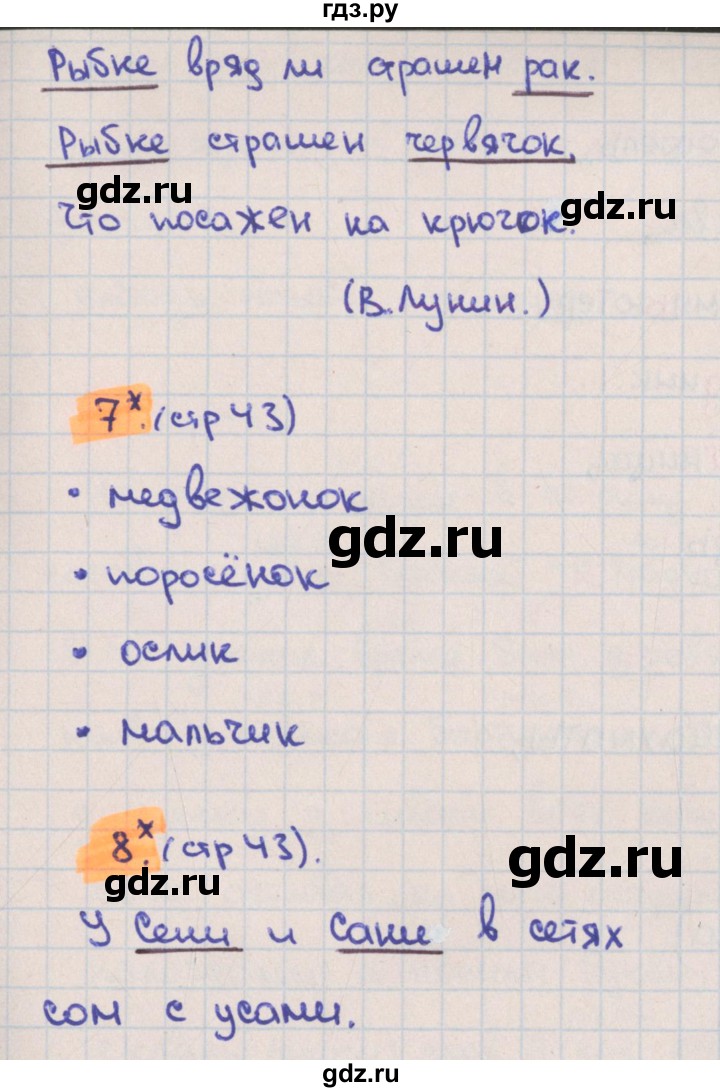 гдз.ру
Рыбке вряд ли страшен рак.
Рыбке страшен червячок,
gdz.ru
gdz.ru
Что посажен на крючок.
(В. Лунин.)
7*. (стр 43)
• медвежонок
gdz.ru
• поросёнок
• ослик
• мальчик
8*. (стр 43).
gdz.ru
gdz.ru
У Сени и Сани в сетях
сом с усами.
gdz.ru